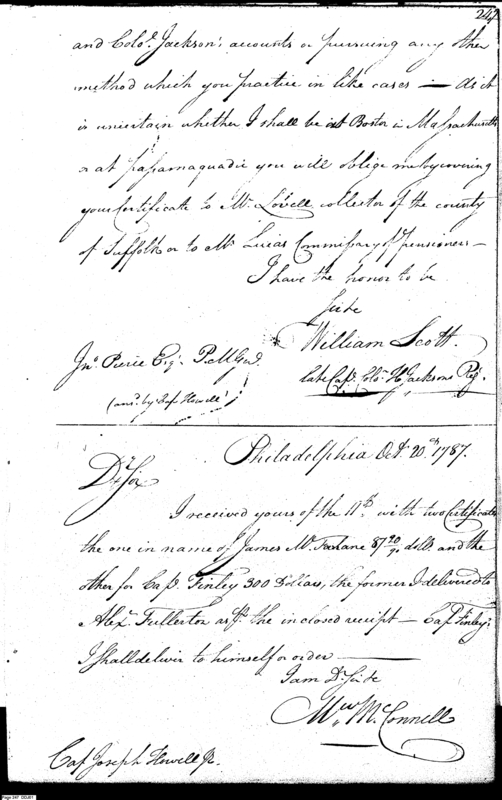 247
and Colo. Jackson's accounts or pursuing any other
method which you practice in like cases — As it
is uncertain whether I shall be at Boston in Massachusetts
or at passamaquadie you will oblige me by covering
your Certificate to Mr. Lovell collector of the county
of Suffolk or to Mr. Lucas Commissary of pensioners —
I have the honor to be
Sir &c
William Scott
late Cap. Colo. H. Jacksons Reg.
Jno. Pierce Esqr. P.M.Genl.
(ansd. by Cap Howell)
Philadelphia Oct. 20.th 1787.
Dr. Sir
I received yours of the 11th. with two Certificates
the one in name of James Mc. Farlane 87 30/90 dolls. and the
other for Cap. Finley 300 Dollars, the former I delivered to
Alexr. Fullerton as pr. the inclosed receipt — Cap Finley's
I shall deliver to himself or order —
I am Dr. Sir &c
Mw. McConnell
Cap Joseph Howell Jr.
Page 247 DDJ01